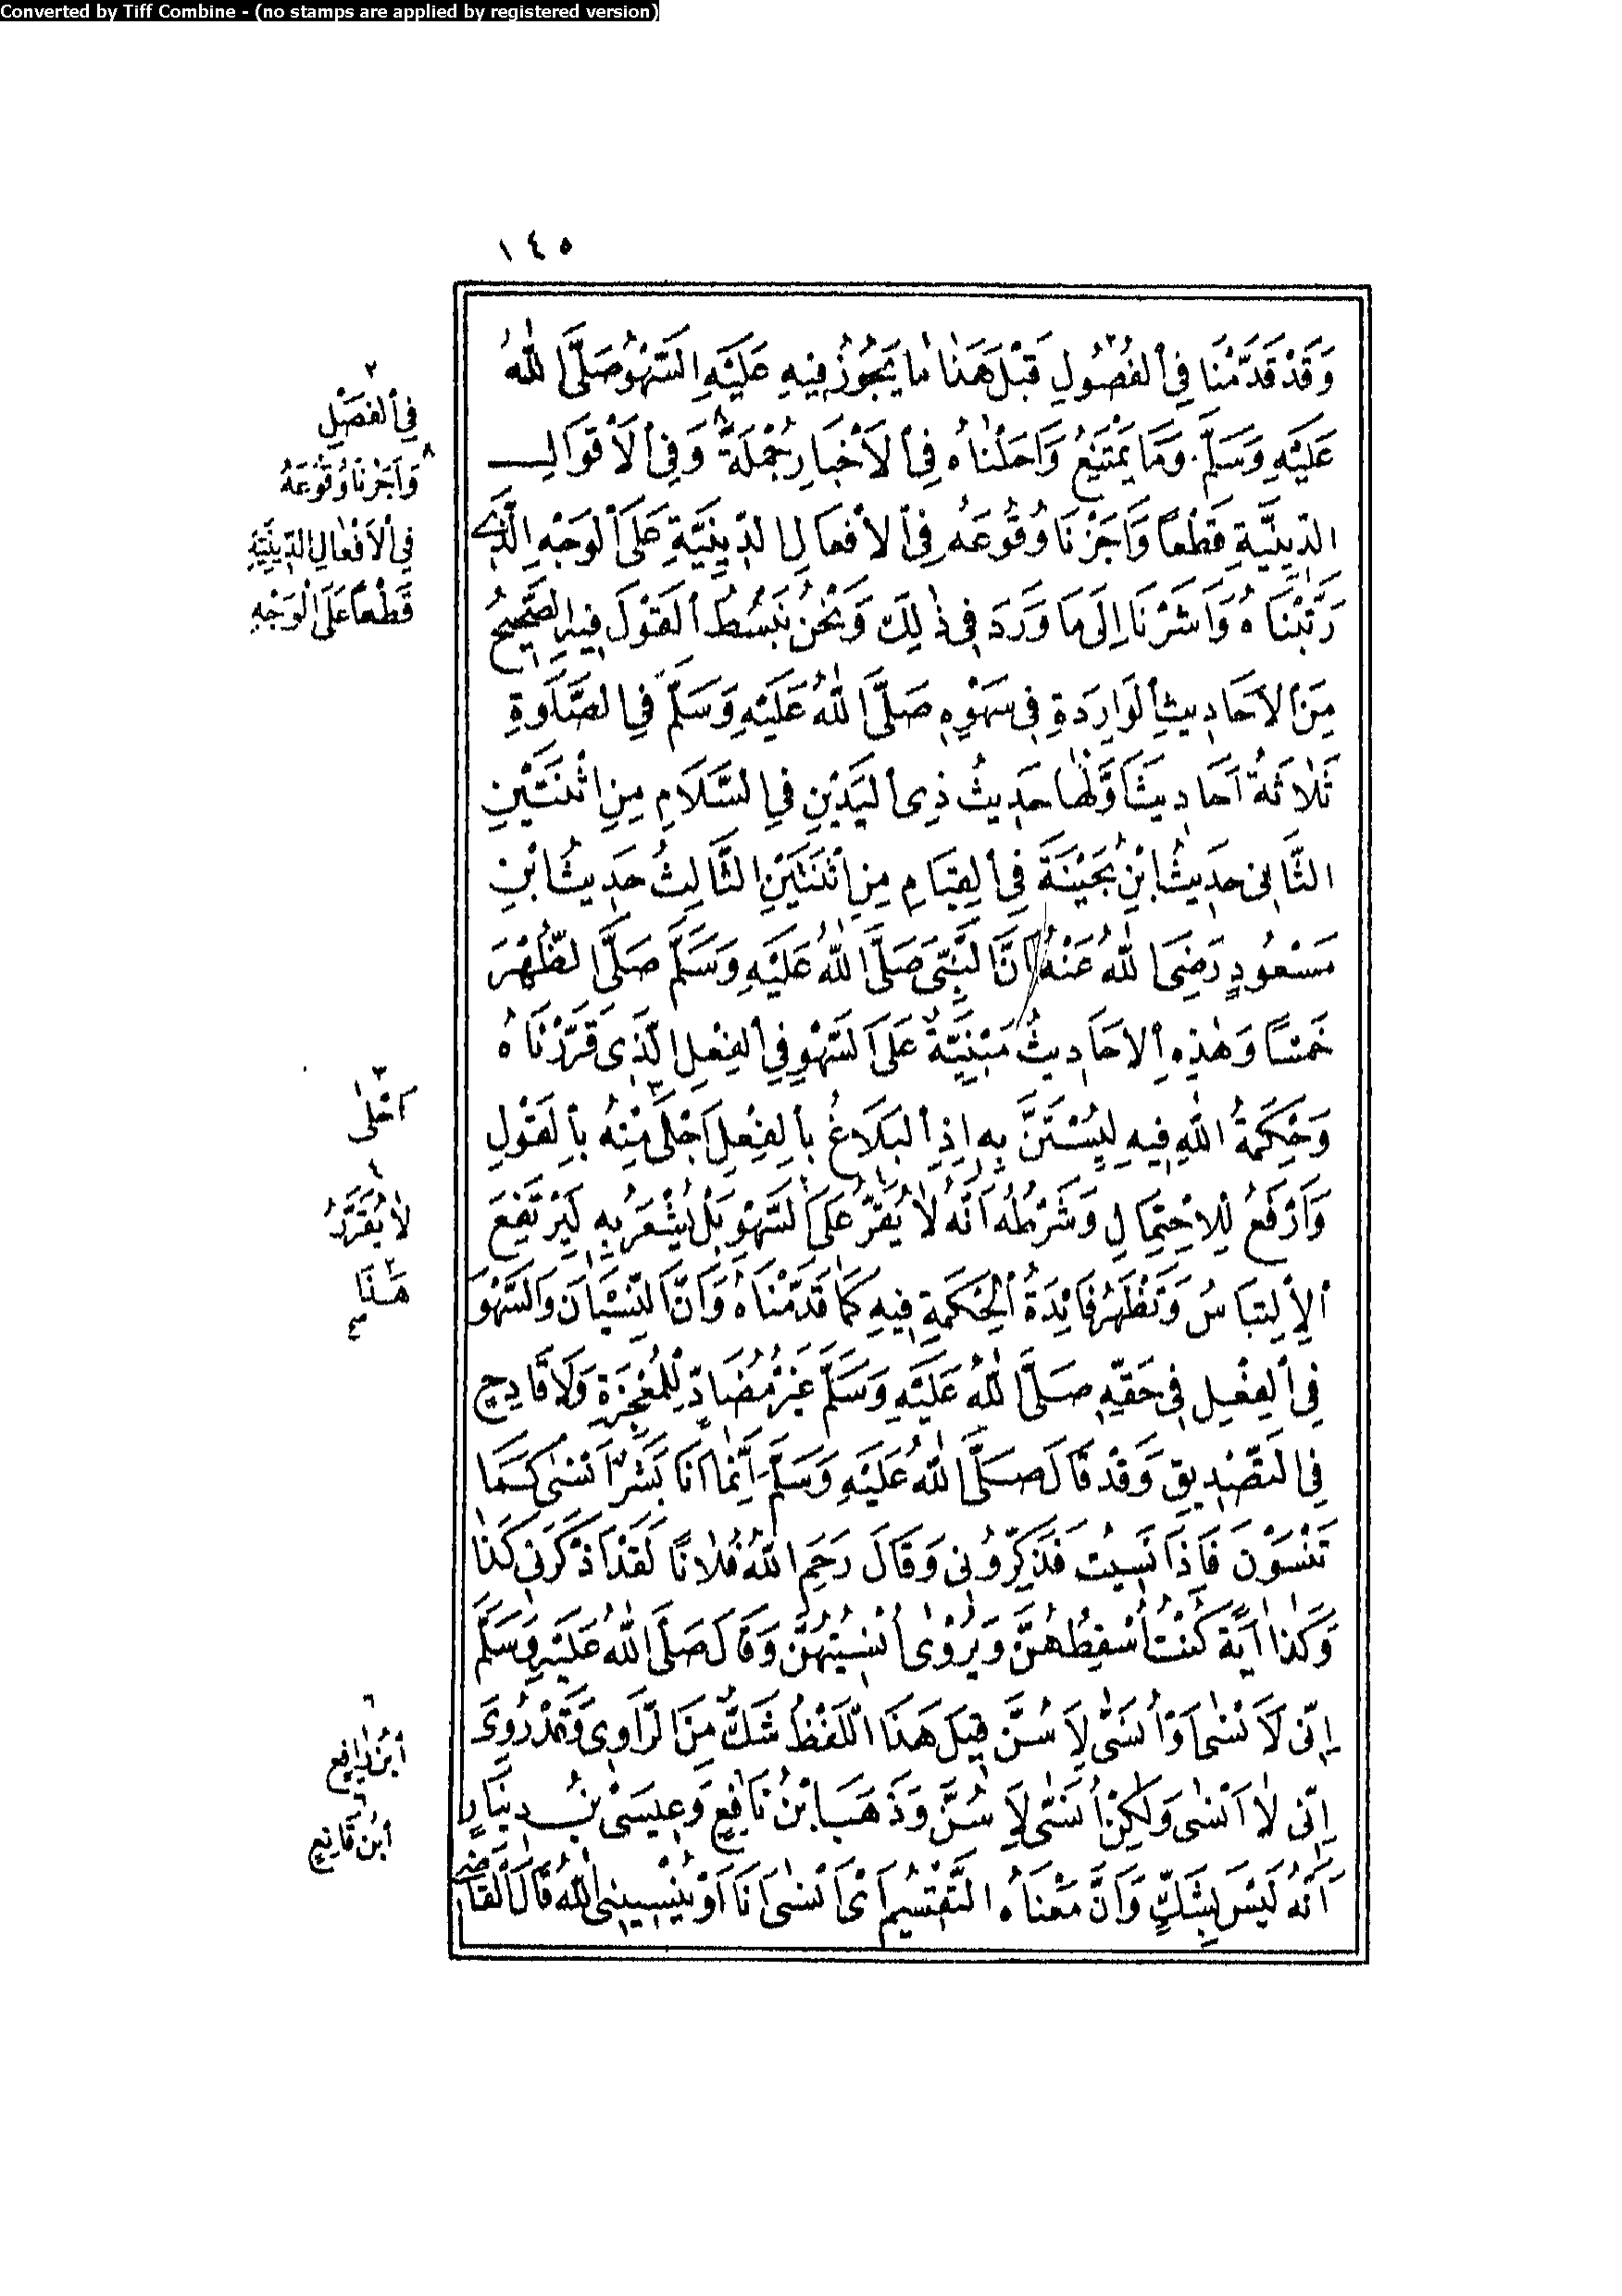 Converted by Tiff Combine - (no stamps are applied by registered version)
١٤٥
وَقَدْ قَدَّمْنَا فِي الْفُصُولِ قَبْلَ هَذَا مَا يَجُوزُ فِيهِ عَلَيْهِ السَّهْوُ صَلَّى اللهُ
عَلَيْهِ وَسَلَّمَ. وَمَا يَمْتَنِعُ وَاَحَلْنَاهُ فِي الْاَخْبَارِ جُمْلَةً ٨ وَفِي الْاَقْوَالِ
الدِّينِيَّةِ قَطْعًا وَاَجَزْنَا وُقُوعَهُ فِي الْاَفْعَالِ الدِّينِيَّةِ عَلَى الْوَجْهِ الَّذِي
رَتَّبْنَاهُ وَاَشَرْنَا اِلَى مَا وَرَدَ فِي ذٰلِكَ وَنَحْنُ نَبْسُطُ الْقَوْلَ فِيهِ الصَّحِيحُ
مِنَ الْاَحَادِيثِ الْوَارِدَةِ فِي سَهْوِهِ صَلَّى اللهُ عَلَيْهِ وَسَلَّمَ فِي الصَّلٰوةِ
ثَلَاثَةُ اَحَادِيثَ اَوَّلُهَا حَدِيثُ ذِي الْيَدَيْنِ فِي السَّلَامِ مِنِ اثْنَتَيْنِ
الثَّانِي حَدِيثُ ابْنِ بُحَيْنَةَ فِي الْقِيَامِ مِنِ اثْنَتَيْنِ الثَّالِثُ حَدِيثُ ابْنِ
مَسْعُودٍ رَضِيَ اللهُ عَنْهُ اَنَّ النَّبِيَّ صَلَّى اللهُ عَلَيْهِ وَسَلَّمَ صَلَّى الظُّهْرَ
خَمْسًا وَهٰذِهِ الْاَحَادِيثُ مَبْنِيَّةٌ عَلَى السَّهْوِ فِي الْفِعْلِ الَّذِي قَرَّرْنَاهُ
وَحِكْمَةُ اللهِ فِيهِ لِيُسْتَنَّ بِهِ اِذِ الْبَلَاغُ بِالْفِعْلِ اَجْلٰى ٣ مِنْهُ بِالْقَوْلِ
وَاَرْفَعُ لِلْاِحْتِمَالِ وَشَرْطُهُ اَنَّهُ لَا يُقَرُّ عَلَى السَّهْوِ بَلْ يُشْعَرُ بِهِ لِيَرْتَفِعَ
الْاِلْتِبَاسُ وَتَظْهَرَ فَائِدَةُ الْحِكْمَةِ فِيهِ كَمَا قَدَّمْنَاهُ وَاَنَّ النِّسْيَانَ وَالسَّهْوَ
فِي الْفِعْلِ فِي حَقِّهِ صَلَّى اللهُ عَلَيْهِ وَسَلَّمَ غَيْرُ مُضَادٍّ لِلْمُعْجِزَةِ وَلَا قَادِحٍ
فِي التَّصْدِيقِ وَقَدْ قَالَ صَلَّى اللهُ عَلَيْهِ وَسَلَّمَ اِنَّمَا اَنَا بَشَرٌ اَنْسٰى كَمَا
تَنْسَوْنَ فَاِذَا نَسِيتُ فَذَكِّرُونِي وَقَالَ رَحِمَ اللهُ فُلَانًا لَقَدْ اَذْكَرَنِي كَذَا
وَكَذَا اٰيَةً كُنْتُ اُسْقِطُهُنَّ وَيُرْوٰى اُنْسِيتُهُنَّ وَقَالَ صَلَّى اللهُ عَلَيْهِ وَسَلَّمَ
اِنِّي لَاَنْسٰى اَوْ اُنَسَّى لِاَسُنَّ قِيلَ هَذَا اللَّفْظُ شَكٌّ مِنَ الرَّاوِي وَقَدْ رُوِيَ
اِنِّي لَا اَنْسٰى وَلٰكِنْ اُنَسَّى لِاَسُنَّ وَذَهَبَ ابْنُ نَافِعٍ وَعِيسَى بْنُ دِينَارٍ
اَنَّهُ لَيْسَ بِشَكٍّ وَاَنَّ مَعْنَاهُ التَّقْسِيمُ اَيْ اَنْسٰى اَنَا اَوْ يُنْسِينِي اللهُ قَالَ الْقَاضِي
٢
فِي الْفَصْلِ
٨
وَاَجَزْنَا وُقُوعَهُ
فِي الْاَفْعَالِ الدِّينِيَّةِ
قَطْعًا عَلَى الْوَجْهِ
٣
اَحْلٰى
٤
لَا يُقَرَّرُ
هَـٰذَا
٦
اَبُنُ رَافِعٍ
٦
اَبُنُ قَانِعٍ